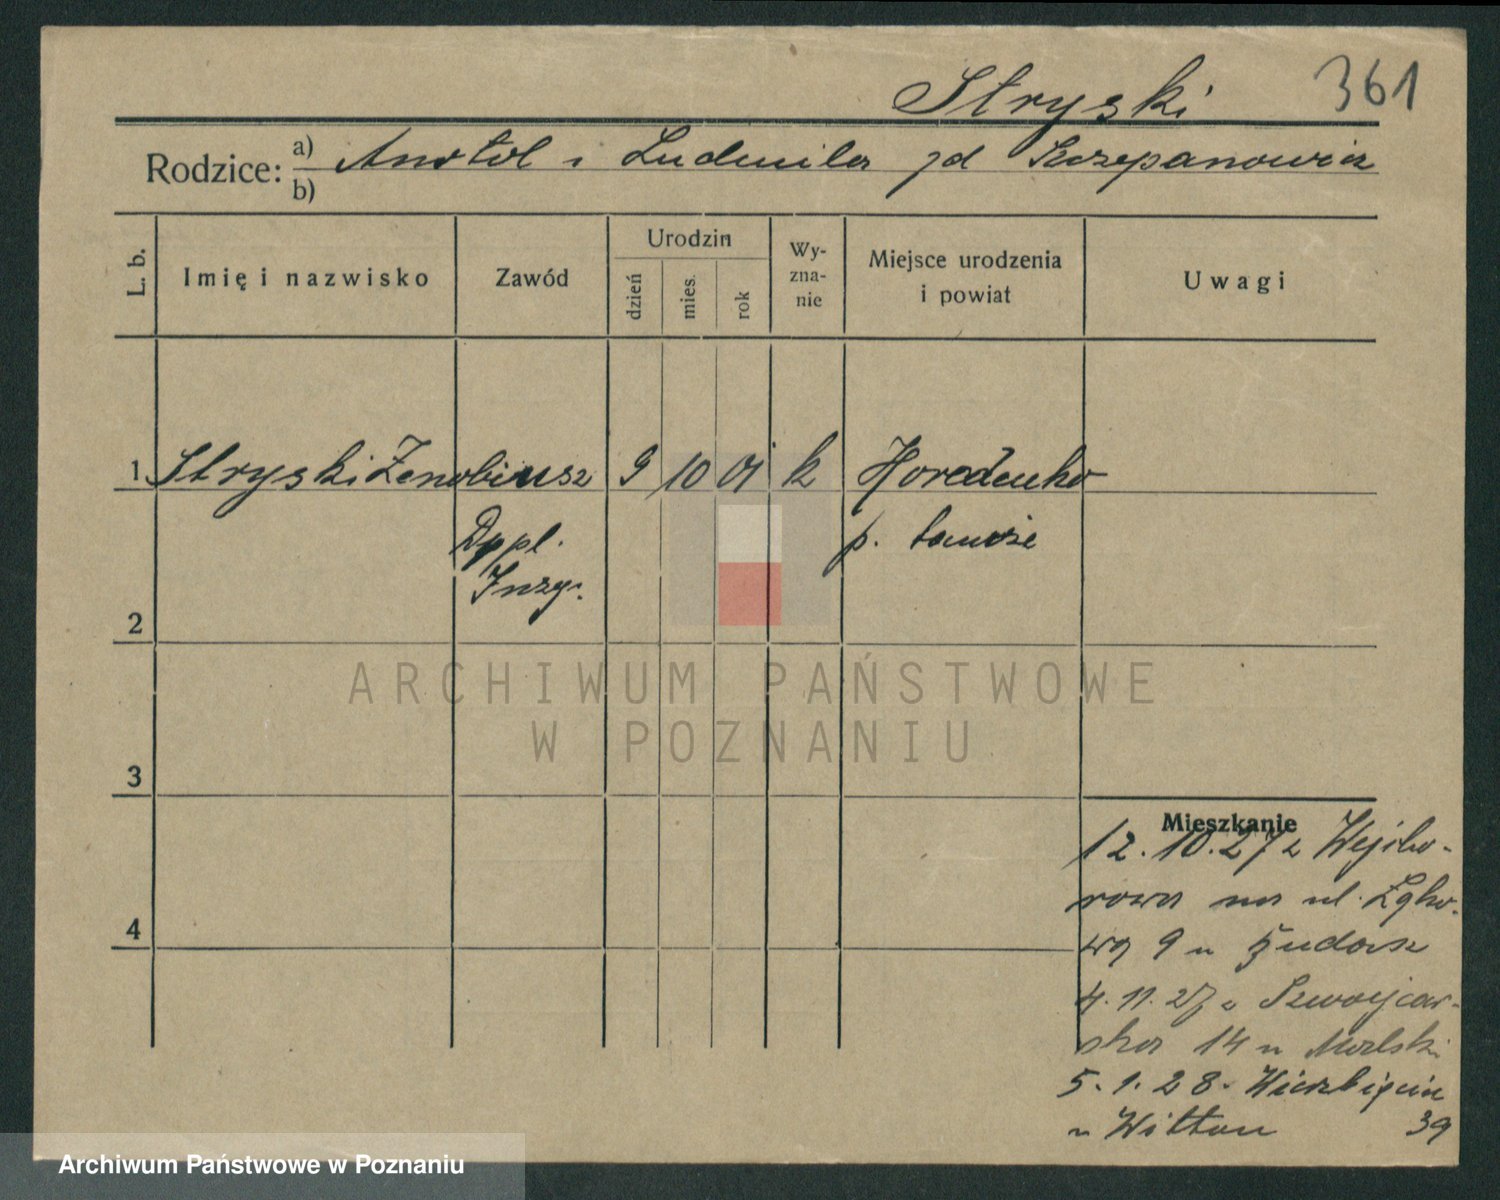 Stryski 361
Rodzice: a) Anatol i Ludmila zd Szczepanowicz
b)
L. b. Imię i nazwisko Zawód Urodzin dzień mies. rok Wy-zna-nie Miejsce urodzenia i powiat Uwagi
1 Stryski Zenobiusz 9 10 01 k Horodenka
Dypl. p. loco
Inży.
2
ARCHIWUM PAŃSTWOWE
W POZNANIU
3
Mieszkanie
12.10.27 z Wejhe-
rowa na ul. Łąko-
4
wą 9 u
4.11.27 Szwajcar-
ska 14 u Molski
5.1.28. Wierzbięcice
u Wittan 39
Archiwum Państwowe w Poznaniu